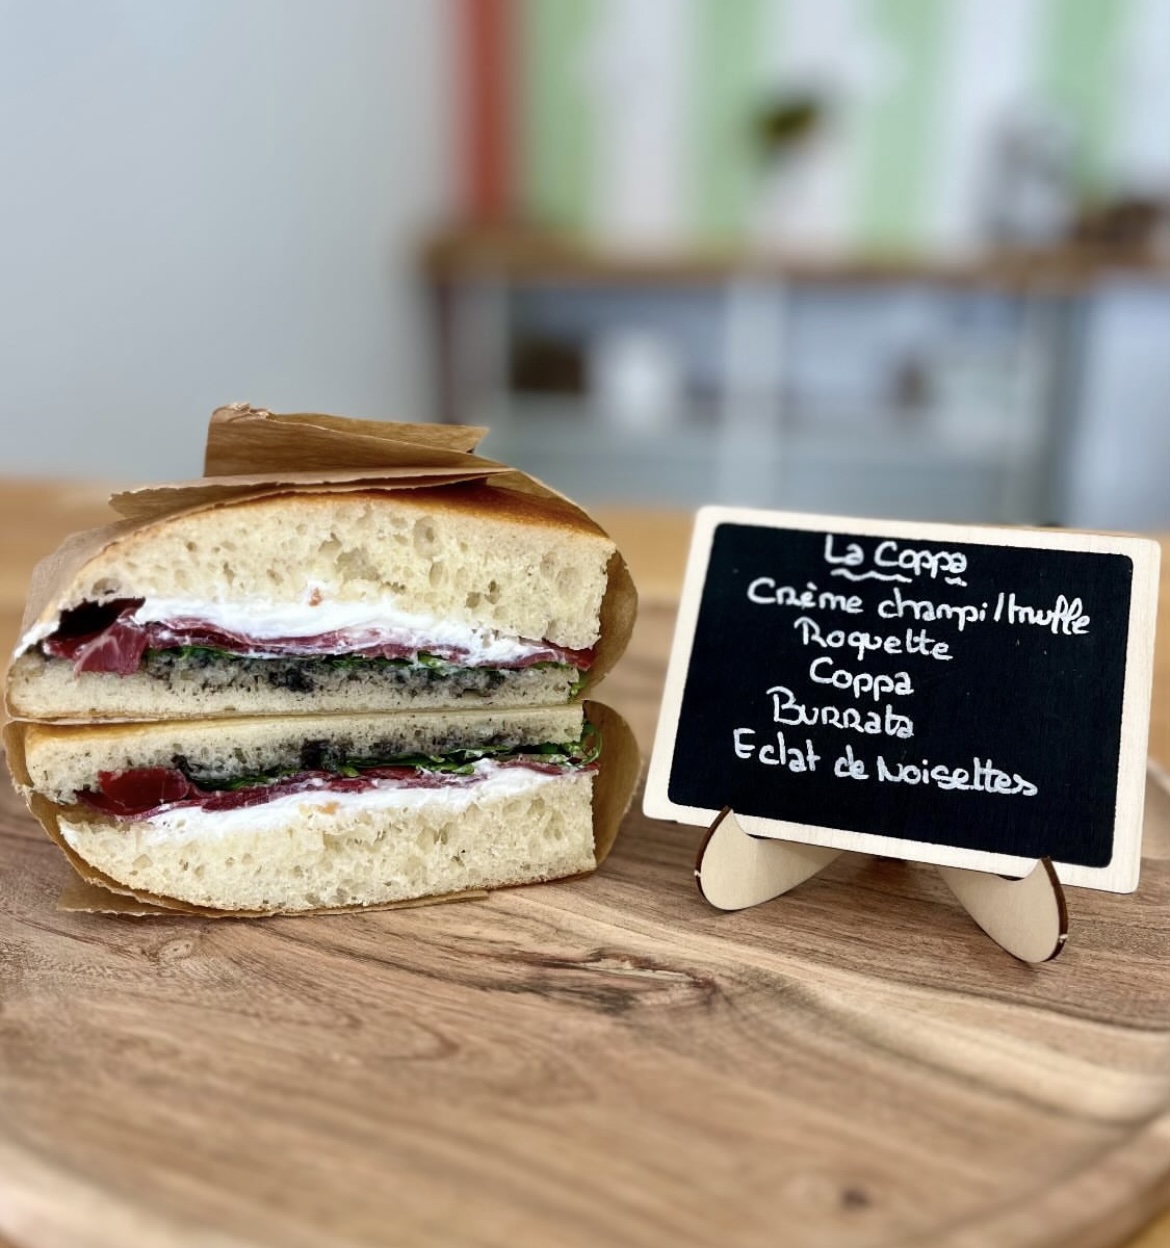 La Coppa
Crème champi/truffle
Roquette
Coppa
Burrata
Eclat de Noisettes